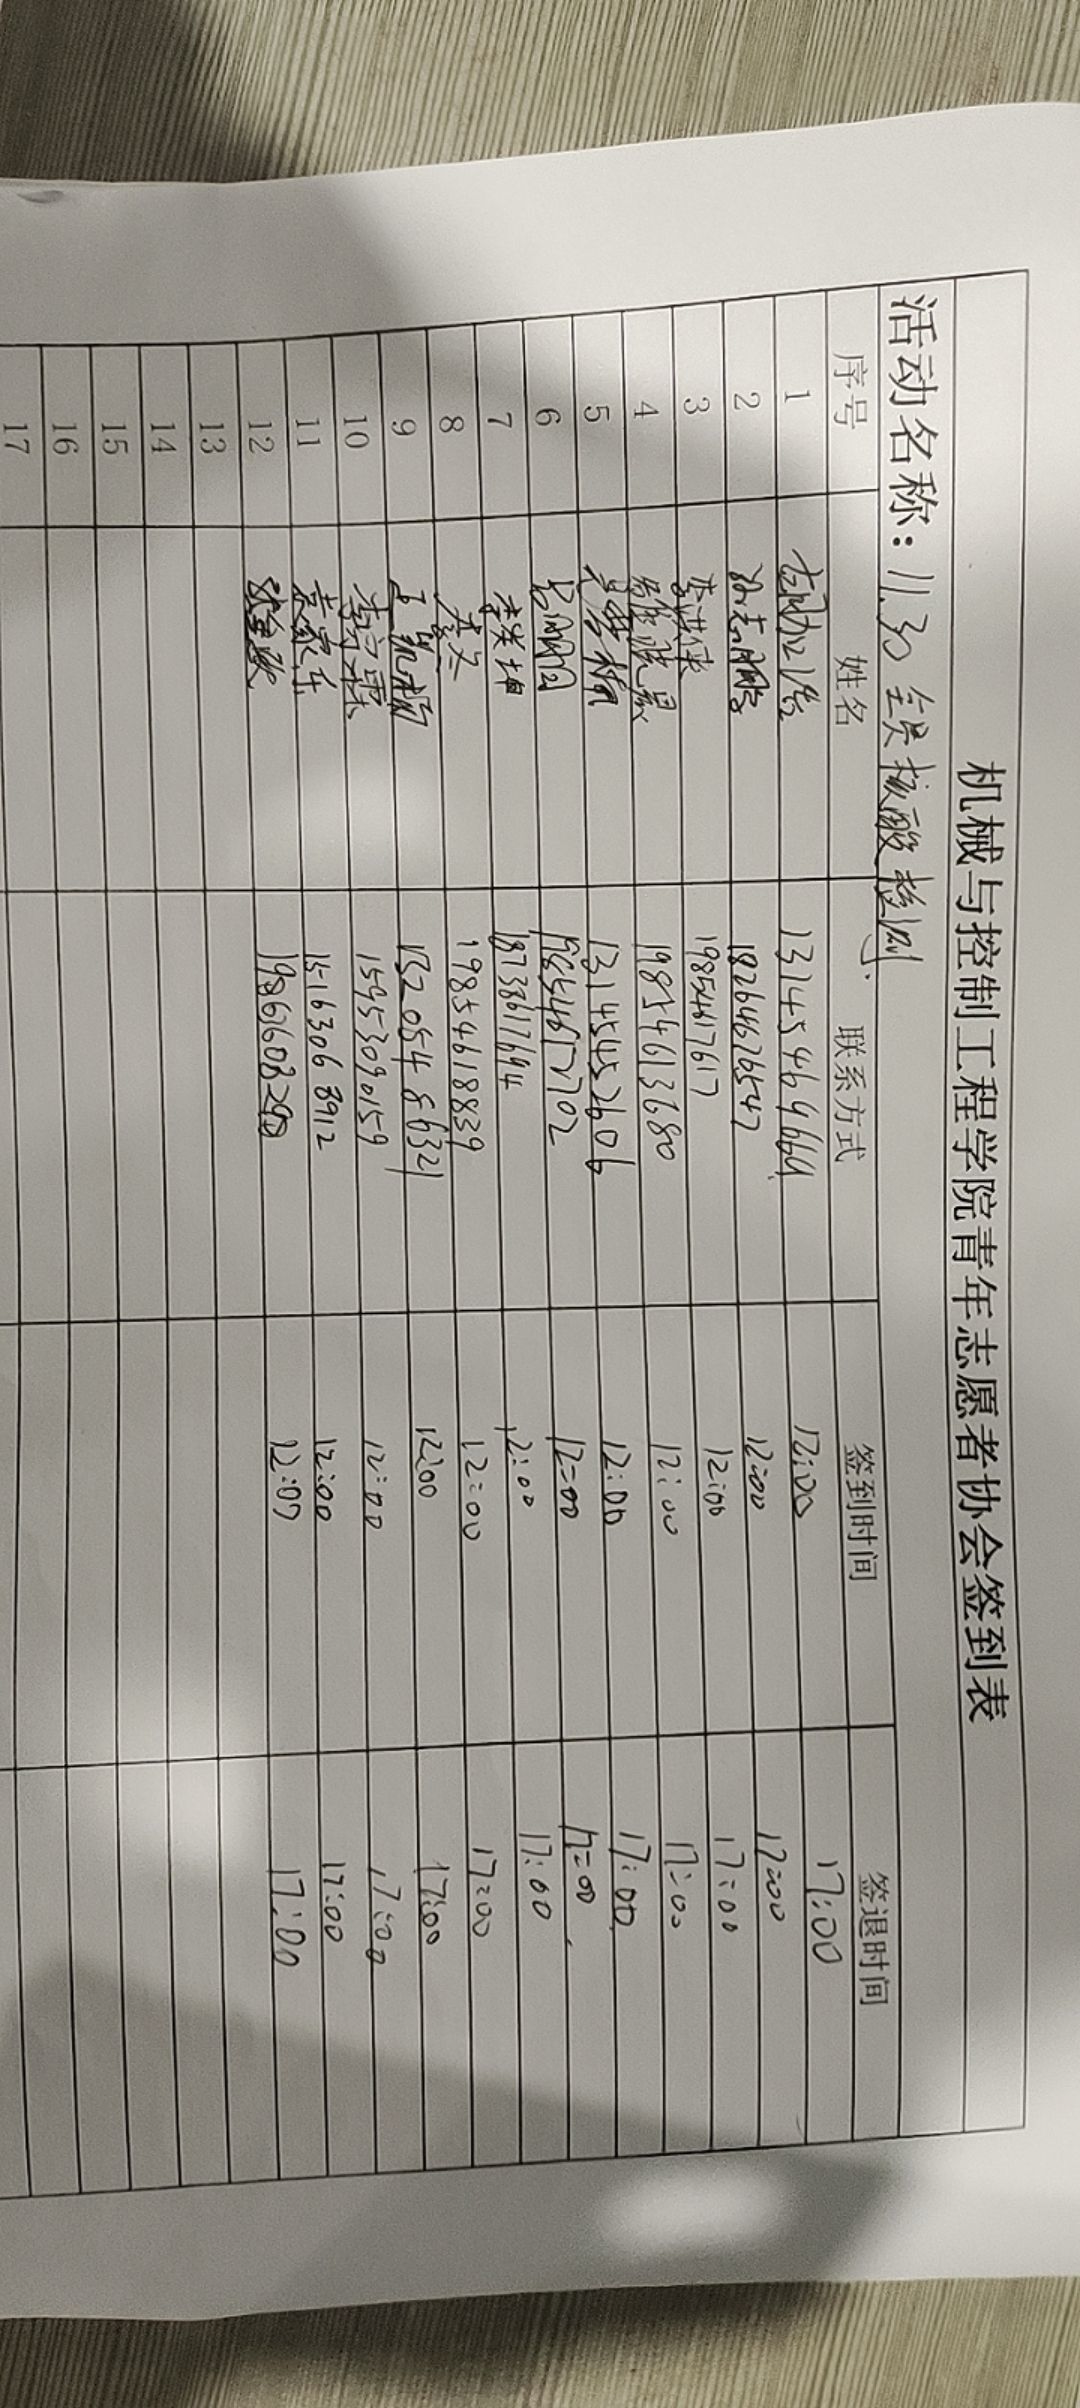 机械与控制工程学院青年志愿者协会签到表
活动名称：11.30 全员核酸检测
序号 姓名 联系方式 签到时间 签退时间
1 13145469664 12:00 17:00
2 孙志鹏 18264676547 12:00 17:00
3 李洪保 19854617617 12:00 17:00
4 19854613680 12:00 17:00
5 13145452606 12:00 17:00
6 12:00 17:00
7 李奖坤 18738617694 12:00 17:00
8 李冬 19854618839 12:00 17:00
9 王凯杨 13205486321 12:00 17:00
10 李宗霖 15953090159 12:00 17:00
11 袁家乐 15163068912 12:00 17:00
12 12:00 17:00
13
14
15
16
17